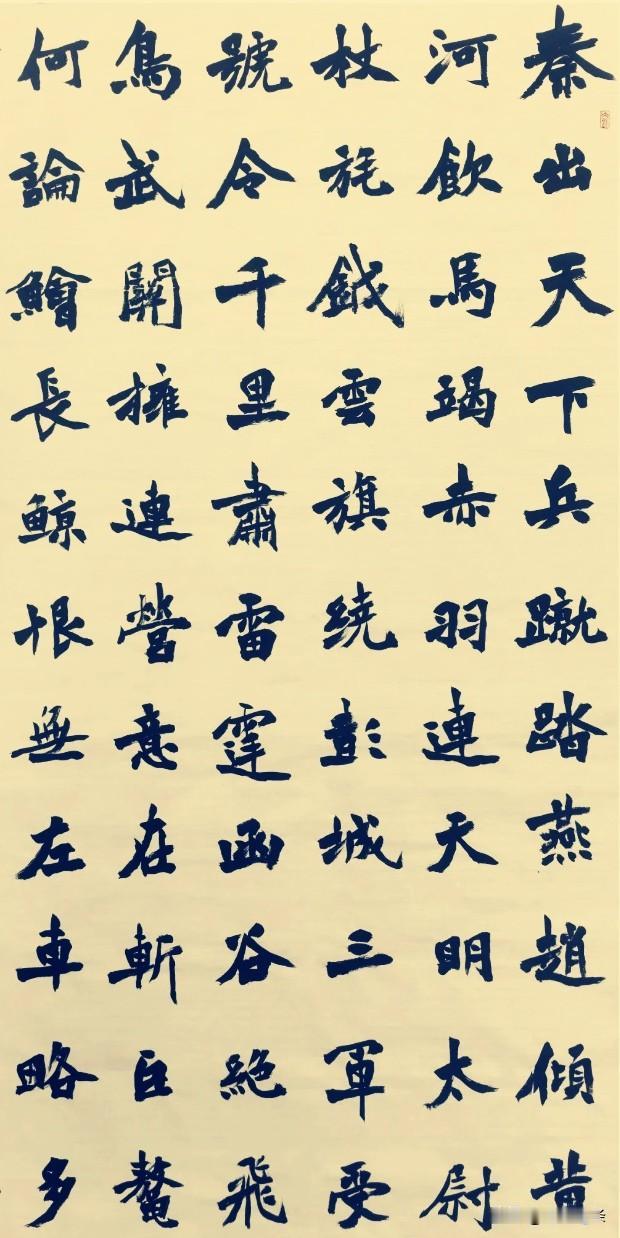 秦出天下兵蹴踏燕趙傾黄
河飲馬竭赤羽連天明太尉
杖旄鉞雲旗繞彭城三軍受
號令千里肅雷霆函谷絶飛
鳥武關擁連營意在斬巨鰲
何論鱠長鯨恨無左車略多